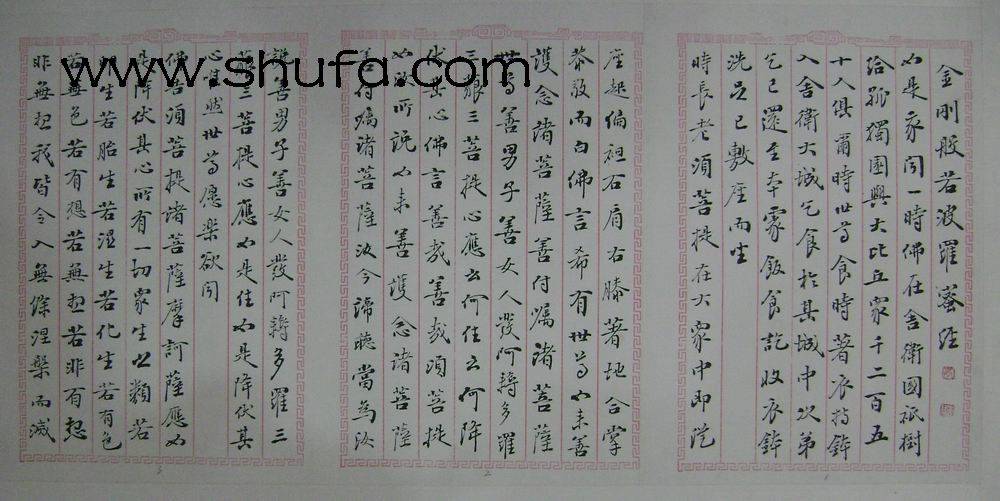 金剛般若波羅蜜經
如是我聞一時佛在舍衛國祇樹
給孤獨園與大比丘眾千二百五
十人俱爾時世尊食時著衣持鉢
入舍衛大城乞食於其城中次第
乞已還至本處飯食訖收衣鉢
洗足已敷座而坐
時長老須菩提在大眾中即從
座起偏袒右肩右膝著地合掌
恭敬而白佛言希有世尊如來善
護念諸菩薩善付囑諸菩薩
世尊善男子善女人發阿耨多羅
三藐三菩提心應云何住云何降
伏其心佛言善哉善哉須菩提
如汝所說如來善護念諸菩薩
善付囑諸菩薩汝今諦聽當為汝
說善男子善女人發阿耨多羅三
藐三菩提心應如是住如是降伏其
心唯然世尊願樂欲聞
佛告須菩提諸菩薩摩訶薩應如
是降伏其心所有一切眾生之類若
卵生若胎生若濕生若化生若有色
若無色若有想若無想若非有想
非無想我皆令入無餘涅槃而滅
1
2
3
www.shufa.com